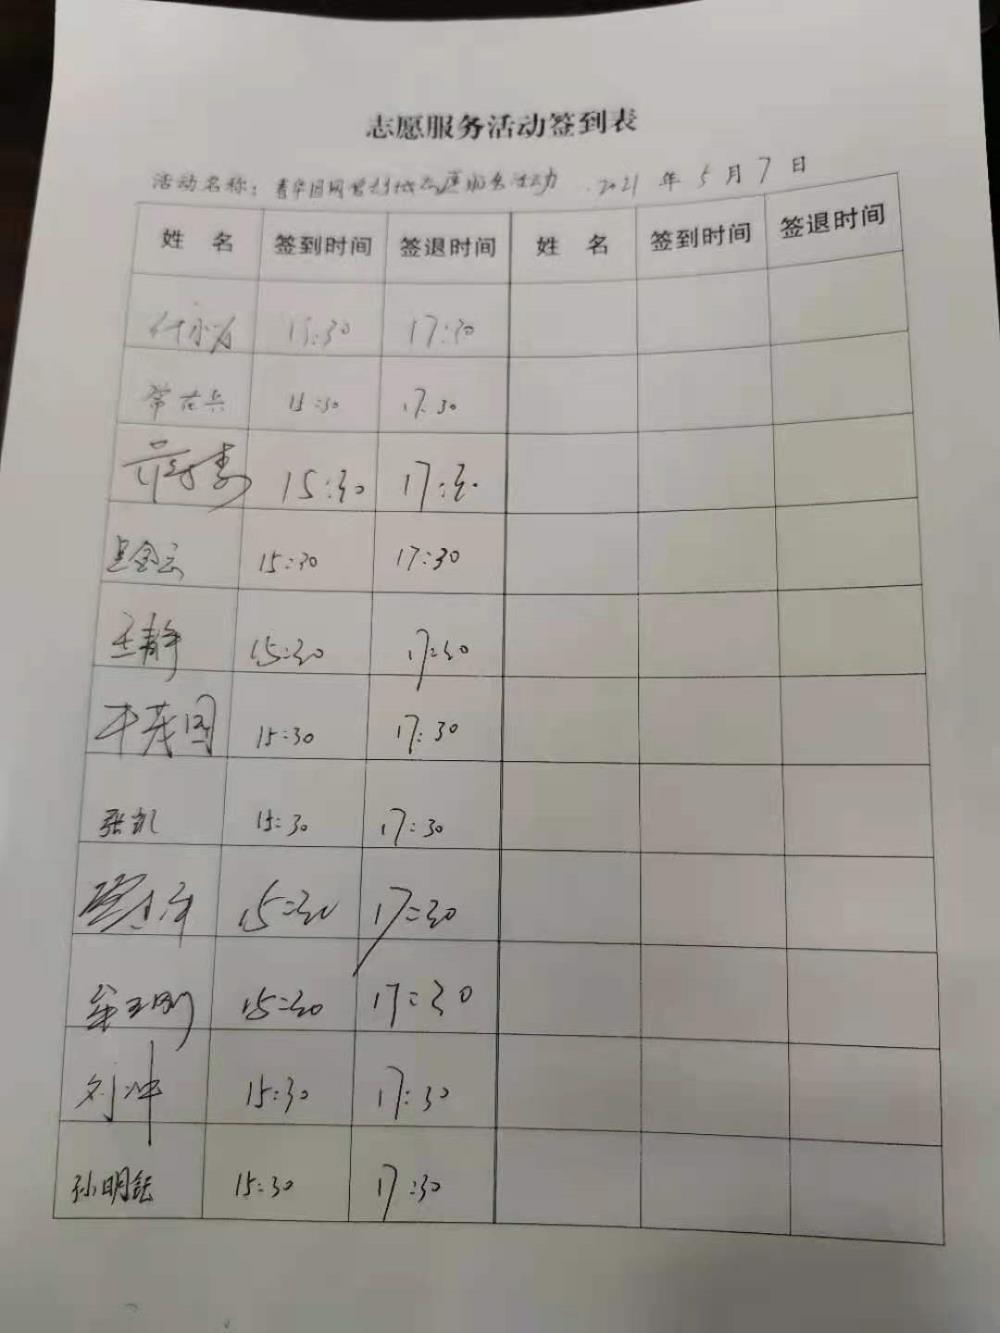 志愿服务活动签到表
活动名称： 志愿服务活动 2021 年 5 月 7 日
姓 名 签到时间 签退时间 姓 名 签到时间 签退时间
15:30 17:30
15:30 17:30
15:30 17:30
15:30 17:30
王静 15:30 17:30
15:30 17:30
张凯 15:30 17:30
15:30 17:30
15:30 17:30
刘冲 15:30 17:30
孙明钰 15:30 17:30